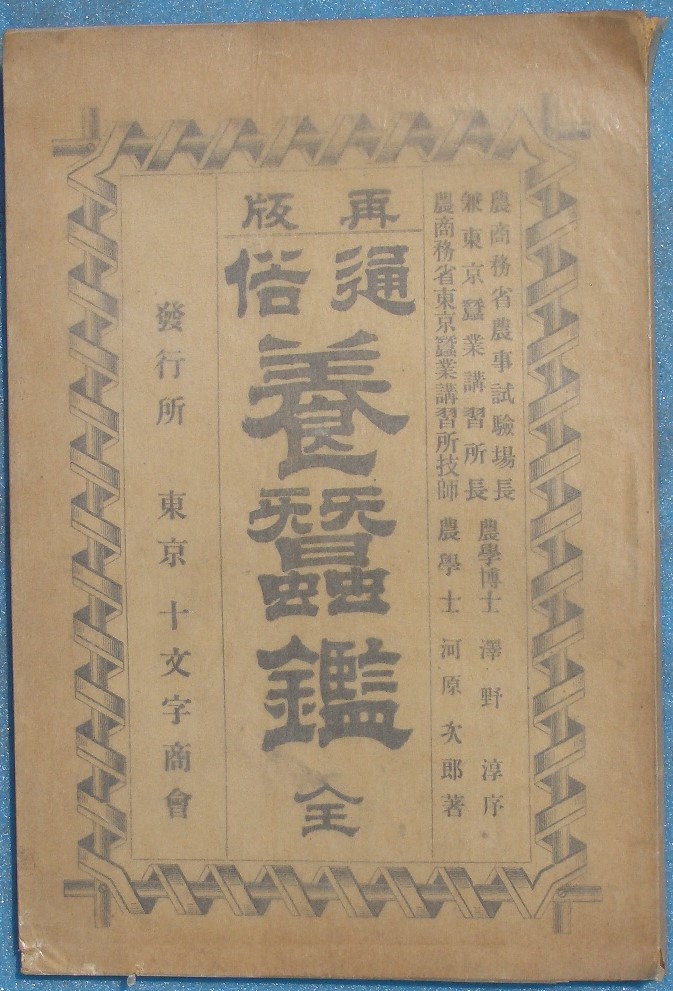 農商務省農事試驗場長
兼東京蠶業講習所長
農學博士 澤野 淳序
農商務省東京蠶業講習所技師 農學士 河原次郎著
再版
通俗
養蠶鑑 全
發行所 東京 十文字商會